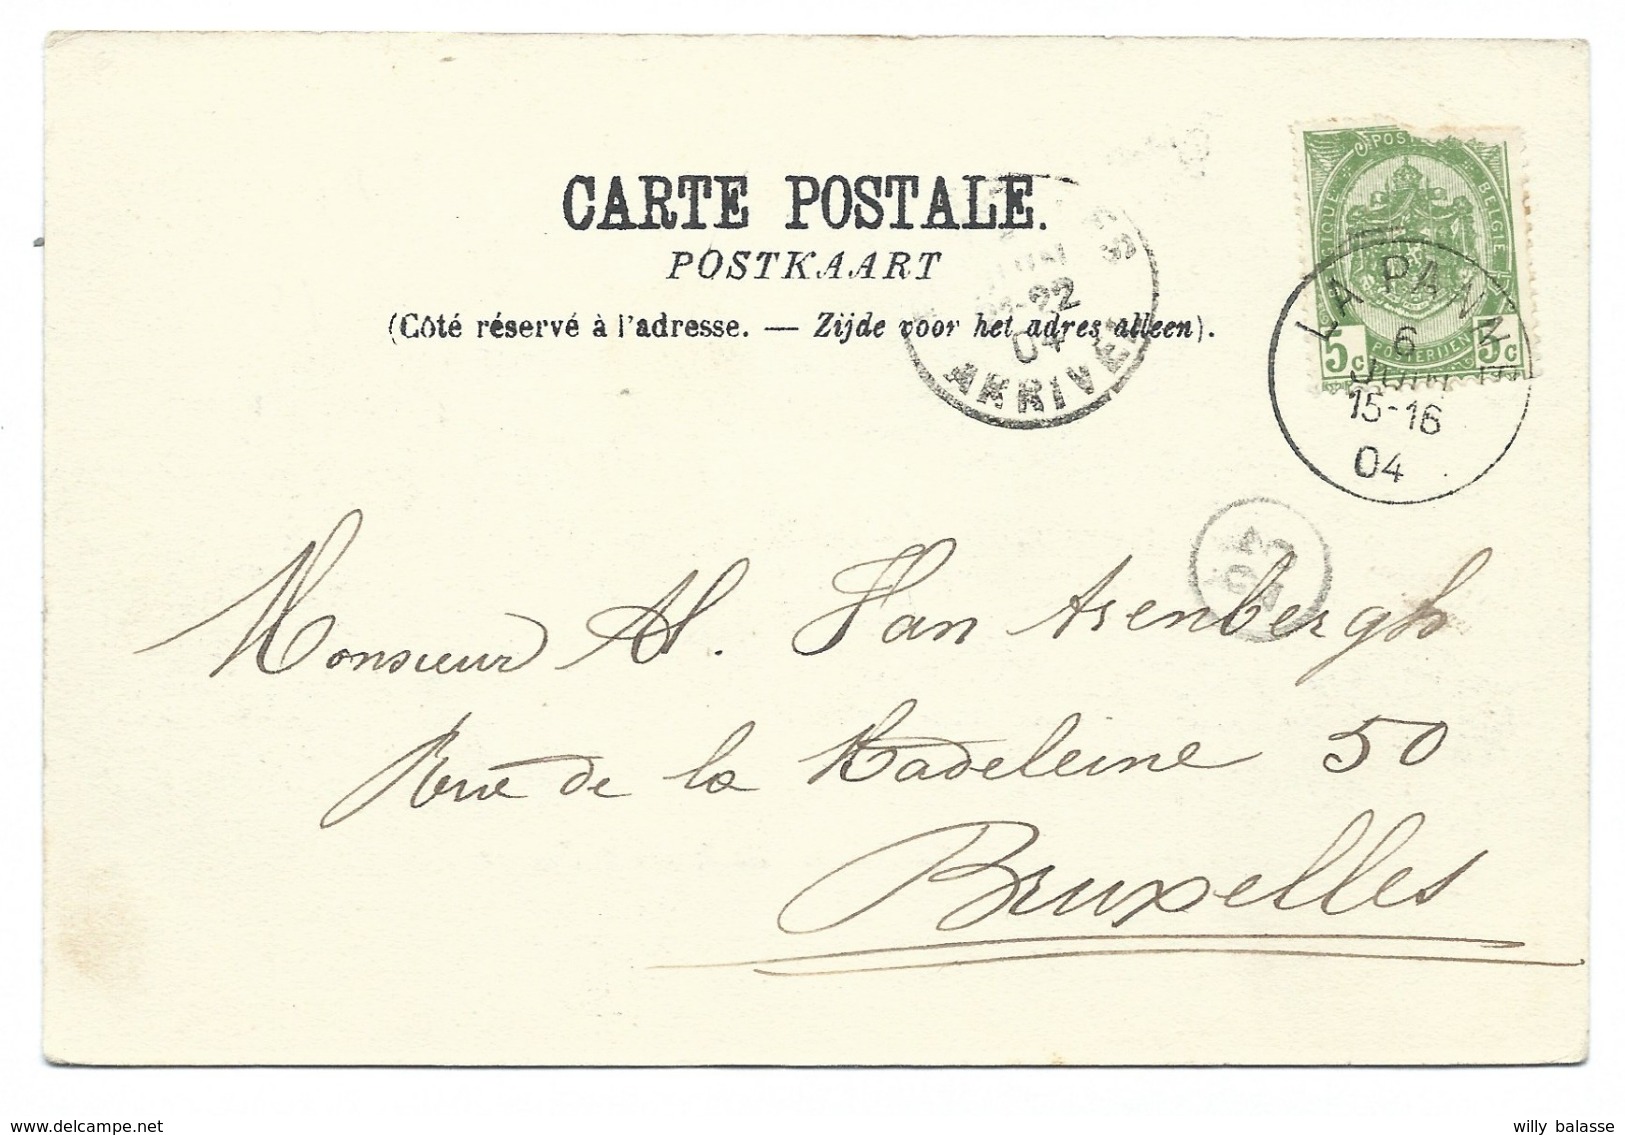 CARTE POSTALE.
POSTKAART
(Côté réservé à l'adresse. — Zijde voor het adres alleen).
BELGIE
5c 5c
LA PANNE
6
JUIN
15-16
04
22
04
ARRIVEE
Monsieur Al. Van Arenbergh
Rue de la Madeleine 50
Bruxelles
www.delcampe.net
willy balasse